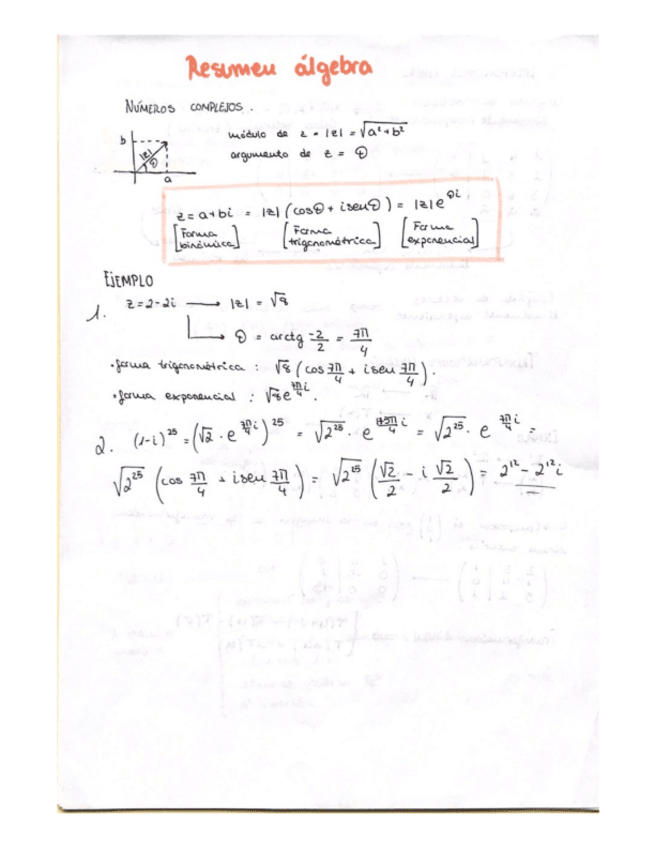 Resumen álgebra
NÚMEROS COMPLEJOS.
módulo de z = |z| = √a²+b²
argumento de z = θ
b |z| θ a
z = a+bi = |z| (cosθ + i senθ) = |z| e^θi
[Forma binómica] [Forma trigonométrica] [Forma exponencial]
EJEMPLO
1. z=2-2i → |z| = √8
→ θ = arctg -2/2 = 7π/4
·forma trigonométrica : √8 (cos 7π/4 + i sen 7π/4).
·forma exponencial : √8 e^7π/4 i.
2. (1-i)^25 = (√2 · e^7π/4 i)^25 = √2^25 · e^175π/4 i = √2^25 · e^7π/4 i =
√2^25 (cos 7π/4 + i sen 7π/4) = √2^25 (√2/2 - i √2/2) = 2^12 - 2^12 i